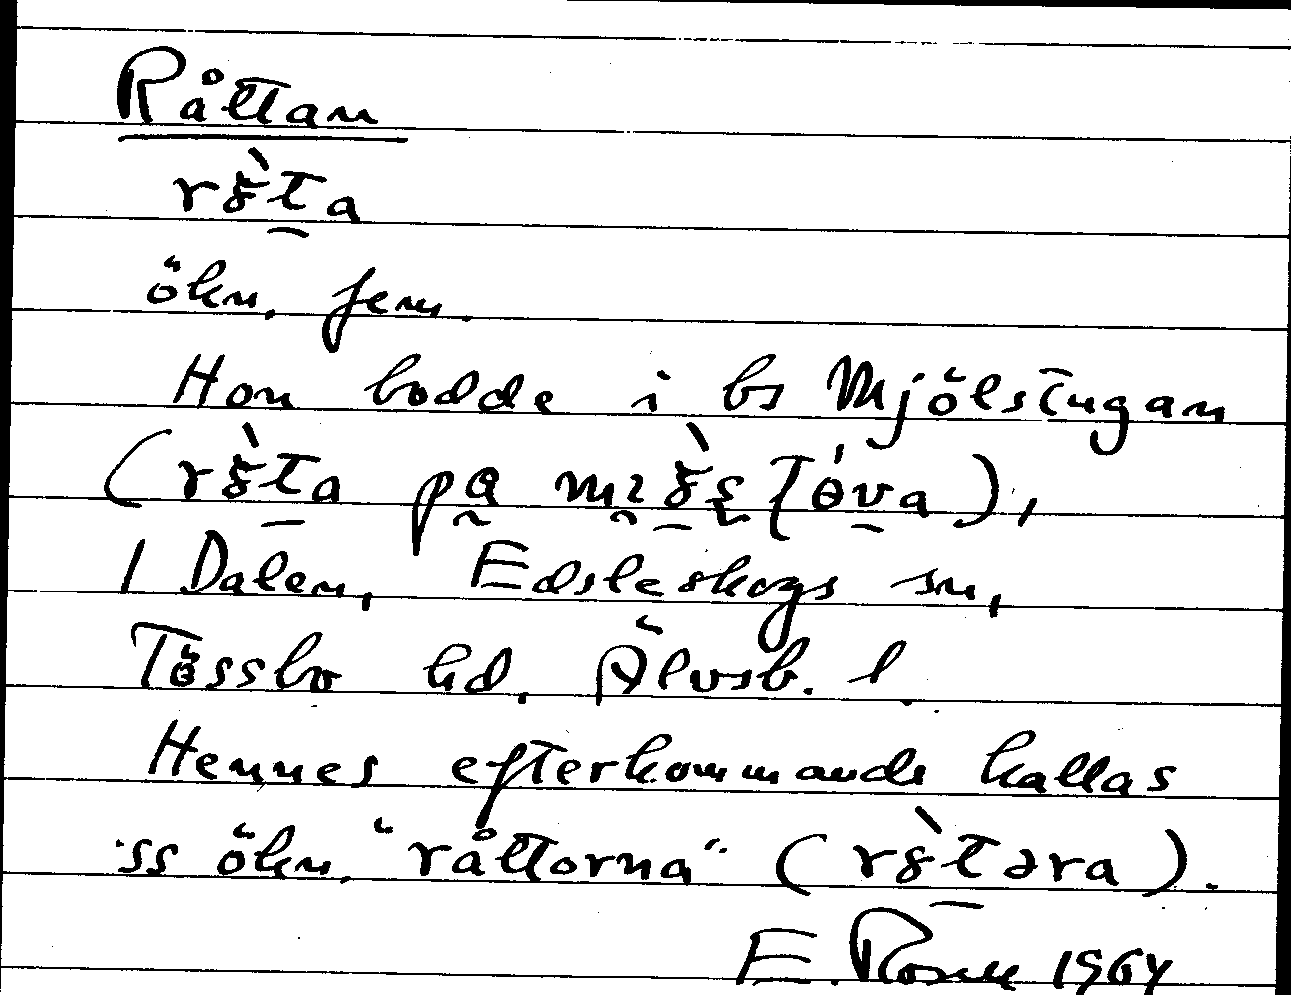 Råttan
rȣ̀ta
ökn. fem.
Hon bodde i bs Mjölstugan
(rȣ̀ta pa
I Dalen, Edsleskogs sn,
Tössbo hd. Älvsb. l.
Hennes efterkommande kallas
ss ökn. "råttorna" (rȣ̀təra).
E. 1964